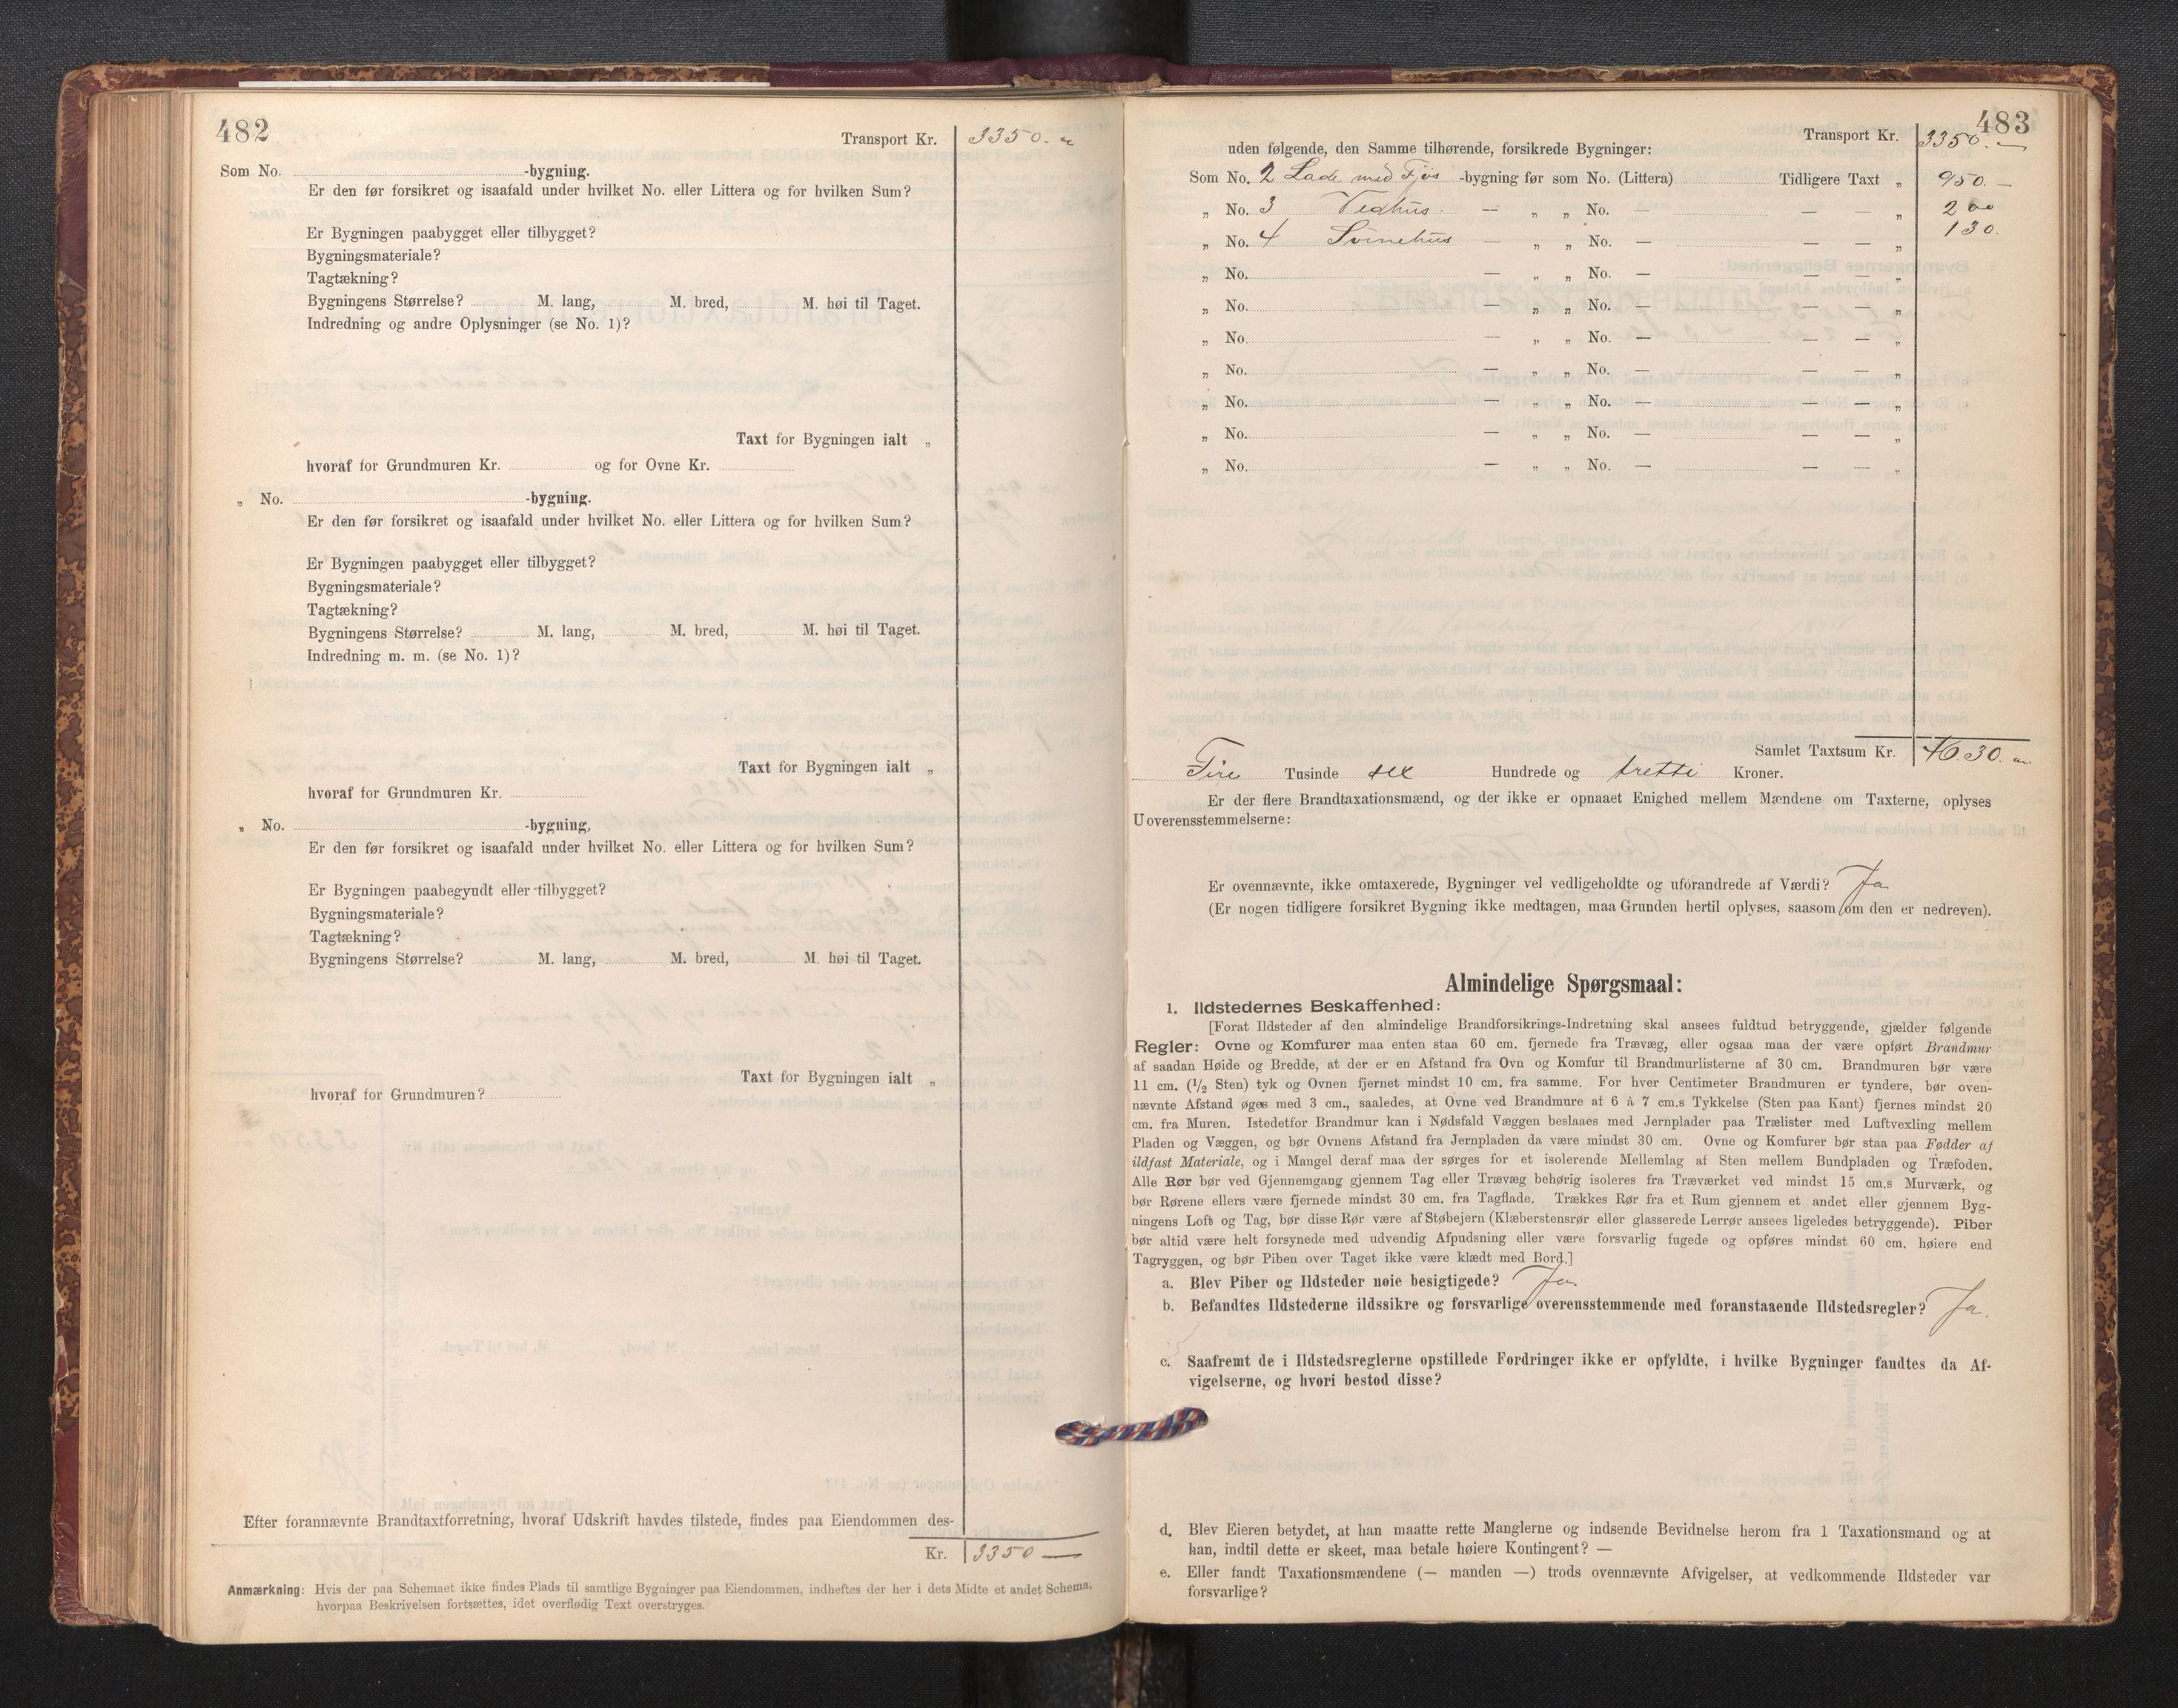 482
Transport Kr. 3350. -
Som No. -bygning.
Er den før forsikret og isaafald under hvilket No. eller Littera og for hvilken Sum?
Er Bygningen paabygget eller tilbygget?
Bygningsmateriale?
Tagtækning?
Bygningens Størrelse? M. lang, M. bred, M. høi til Taget.
Indredning og andre Oplysninger (se No. 1)?
Taxt for Bygningen ialt „
hvoraf for Grundmuren Kr. og for Ovne Kr.
„ No. -bygning.
Er den før forsikret og isaafald under hvilket No. eller Littera og for hvilken Sum?
Er Bygningen paabygget eller tilbygget?
Bygningsmateriale?
Tagtækning?
Bygningens Størrelse? M. lang, M. bred, M. høi til Taget.
Indredning m. m. (se No. 1)?
Taxt for Bygningen ialt „
hvoraf for Grundmuren Kr.
„ No. -bygning,
Er den før forsikret og isaafald under hvilket No. eller Littera og for hvilken Sum?
Er Bygningen paabegyndt eller tilbygget?
Bygningsmateriale?
Tagtækning?
Bygningens Størrelse? M. lang, M. bred, M. høi til Taget.
Taxt for Bygningen ialt „
hvoraf for Grundmuren?
Efter forannævnte Brandtaxtforretning, hvoraf Udskrift havdes tilstede, findes paa Eiendommen des-
Kr. 3350 —
Anmærkning: Hvis der paa Schemaet ikke findes Plads til samtlige Bygninger paa Eiendommen, indheftes der her i dets Midte et andet Schema,
hvorpaa Beskrivelsen fortsættes, idet overflødig Text overstryges.
483
Transport Kr. 3350. —
uden følgende, den Samme tilhørende, forsikrede Bygninger:
Som No. 2 Lade med Fjøs -bygning før som No. (Littera) Tidligere Taxt „ 950. —
„ No. 3 Vedhus. — „ „ No. — — — „ 200
„ No. 4 Svinehus — „ „ No. — — — „ 130.
„ No. — „ „ No. — — — „
„ No. — „ „ No. — — — „
„ No. — „ „ No. — — — „
„ No. — „ „ No. — — — „
„ No. — „ „ No. — — — „
„ No. — „ „ No. — — — „
„ No. — „ „ No. — — — „
Samlet Taxtsum Kr. 4630.
Fire Tusinde sex Hundrede og tretti Kroner.
Er der flere Brandtaxationsmænd, og der ikke er opnaaet Enighed mellem Mændene om Taxterne, oplyses
Uoverensstemmelserne:
Er ovennævnte, ikke omtaxerede, Bygninger vel vedligeholdte og uforandrede af Værdi? Ja
(Er nogen tidligere forsikret Bygning ikke medtagen, maa Grunden hertil oplyses, saasom om den er nedreven).
Almindelige Spørgsmaal:
1. Ildstedernes Beskaffenhed:
[Forat Ildsteder af den almindelige Brandforsikrings-Indretning skal ansees fuldtud betryggende, gjælder følgende
Regler: Ovne og Komfurer maa enten staa 60 cm. fjernede fra Trævæg, eller ogsaa maa der være opført Brandmur
af saadan Høide og Bredde, at der er en Afstand fra Ovn og Komfur til Brandmurlisterne af 30 cm. Brandmuren bør være
11 cm. (1/2 Sten) tyk og Ovnen fjernet mindst 10 cm. fra samme. For hver Centimeter Brandmuren er tyndere, bør oven-
nævnte Afstand øges med 3 cm., saaledes, at Ovne ved Brandmure af 6 à 7 cm.s Tykkelse (Sten paa Kant) fjernes mindst 20
cm. fra Muren. Istedetfor Brandmur kan i Nødsfald Væggen beslaaes med Jernplader paa Trælister med Luftvexling mellem
Pladen og Væggen, og bør Ovnens Afstand fra Jernpladen da være mindst 30 cm. Ovne og Komfurer bør staa paa Fødder af
ildfast Materiale, og i Mangel deraf maa der sørges for et isolerende Mellemlag af Sten mellem Bundpladen og Træfoden.
Alle Rør bør ved Gjennemgang gjennem Tag eller Trævæg behørig isoleres fra Træværket ved mindst 15 cm.s Murværk, og
bør Rørene ellers være fjernede mindst 30 cm. fra Tagflade. Trækkes Rør fra et Rum gjennem et andet eller gjennem Byg-
ningens Loft og Tag, bør disse Rør være af Støbejern (Klæberstensrør eller glasserede Lerrør ansees ligeledes betryggende). Piber
bør altid være helt forsynede med udvendig Afpudsning eller være forsvarlig fugede og opføres mindst 60 cm. høiere end
Tagryggen, og bør Piben over Taget ikke være klædt med Bord.]
a. Blev Piber og Ildsteder nøie besigtigede? Ja.
b. Befandtes Ildstederne ildssikre og forsvarlige overensstemmende med foranstaaende Ildstedsregler? Ja.
c. Saafremt de i Ildstedsreglerne opstillede Fordringer ikke er opfyldte, i hvilke Bygninger fandtes da Af-
vigelserne, og hvori bestod disse?
d. Blev Eieren betydet, at han maatte rette Manglerne og indsende Bevidnelse herom fra 1 Taxationsmand og at
han, indtil dette er skeet, maa betale høiere Kontingent? —
e. Eller fandt Taxationsmændene (— manden —) trods ovennævnte Afvigelser, at vedkommende Ildsteder var
forsvarlige?